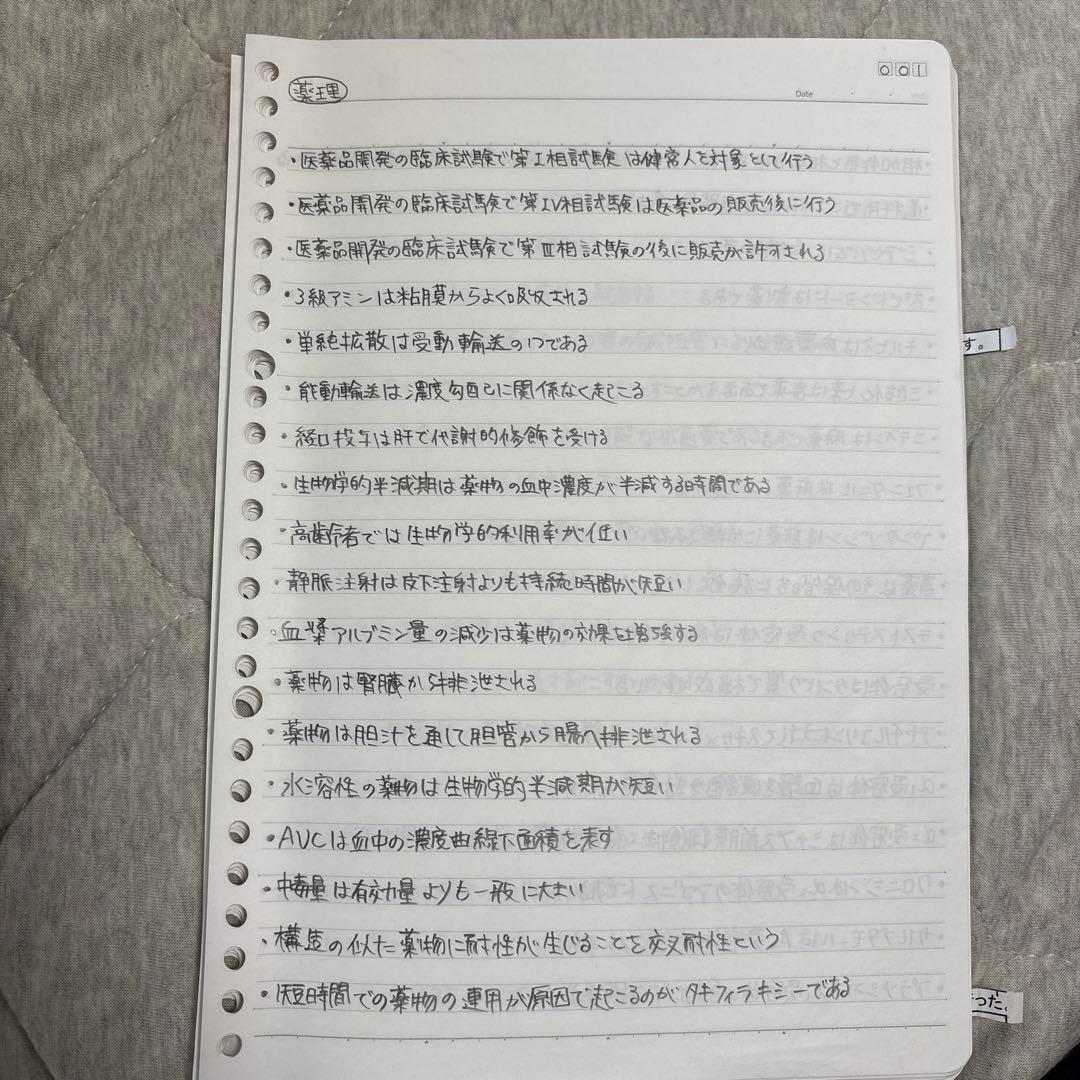 001
薬理
Date
・医薬品開発の臨床試験で第I相試験は健常人を対象として行う
・医薬品開発の臨床試験で第IV相試験は医薬品の販売後に行う
・医薬品開発の臨床試験で第III相試験の後に販売が許可される
・3級アミンは粘膜からよく吸収される
・単純拡散は受動輸送の1つである
・能動輸送は濃度勾配に関係なく起こる
・経口投与は肝で代謝的修飾を受ける
・生物学的半減期は薬物の血中濃度が半減する時間である
・高齢者では生物学的利用率が低い
・静脈注射は皮下注射よりも持続時間が短い
・血漿アルブミン量の減少は薬物の効果を増強する
・薬物は腎臓から排泄される
・薬物は胆汁を通して胆管から腸へ排泄される
・水溶性の薬物は生物学的半減期が短い
・AVCは血中の濃度曲線下面積を表す
・中毒量は有効量よりも一般に大きい
・構造の似た薬物に耐性が生じることを交叉耐性という
・短時間での薬物の連用が原因で起こるのがタキフィラキシーである
す。
った。